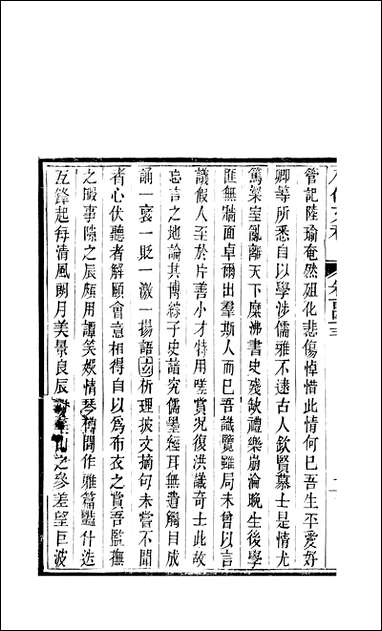 管記陸瑜奄然殂化悲傷悼惜此情何已吾生平愛好
卿等所悉自以學涉儒雅不逮古人欽賢慕士是情尤
篤梁室亂離天下糜沸書史殘缺禮樂崩淪晚生後學
匪無牆面卓爾出羣斯人而已吾識覽雖局未曾以言
議假人至於片善小才特用嗟賞況復洪識奇士此故
忘言之地論其博綜子史諳究儒墨經耳無遺觸目成
誦一襃一貶一激一揚語玄析理披文摘句未嘗不聞
者心伏聽者解頤會意相得自以爲布衣之賞吾監撫
之暇事隙之辰頗用譚笑娛情琴樽閒作雅篇豔什迭
互鋒起每清風朗月美景良辰對羣山之參差望巨波